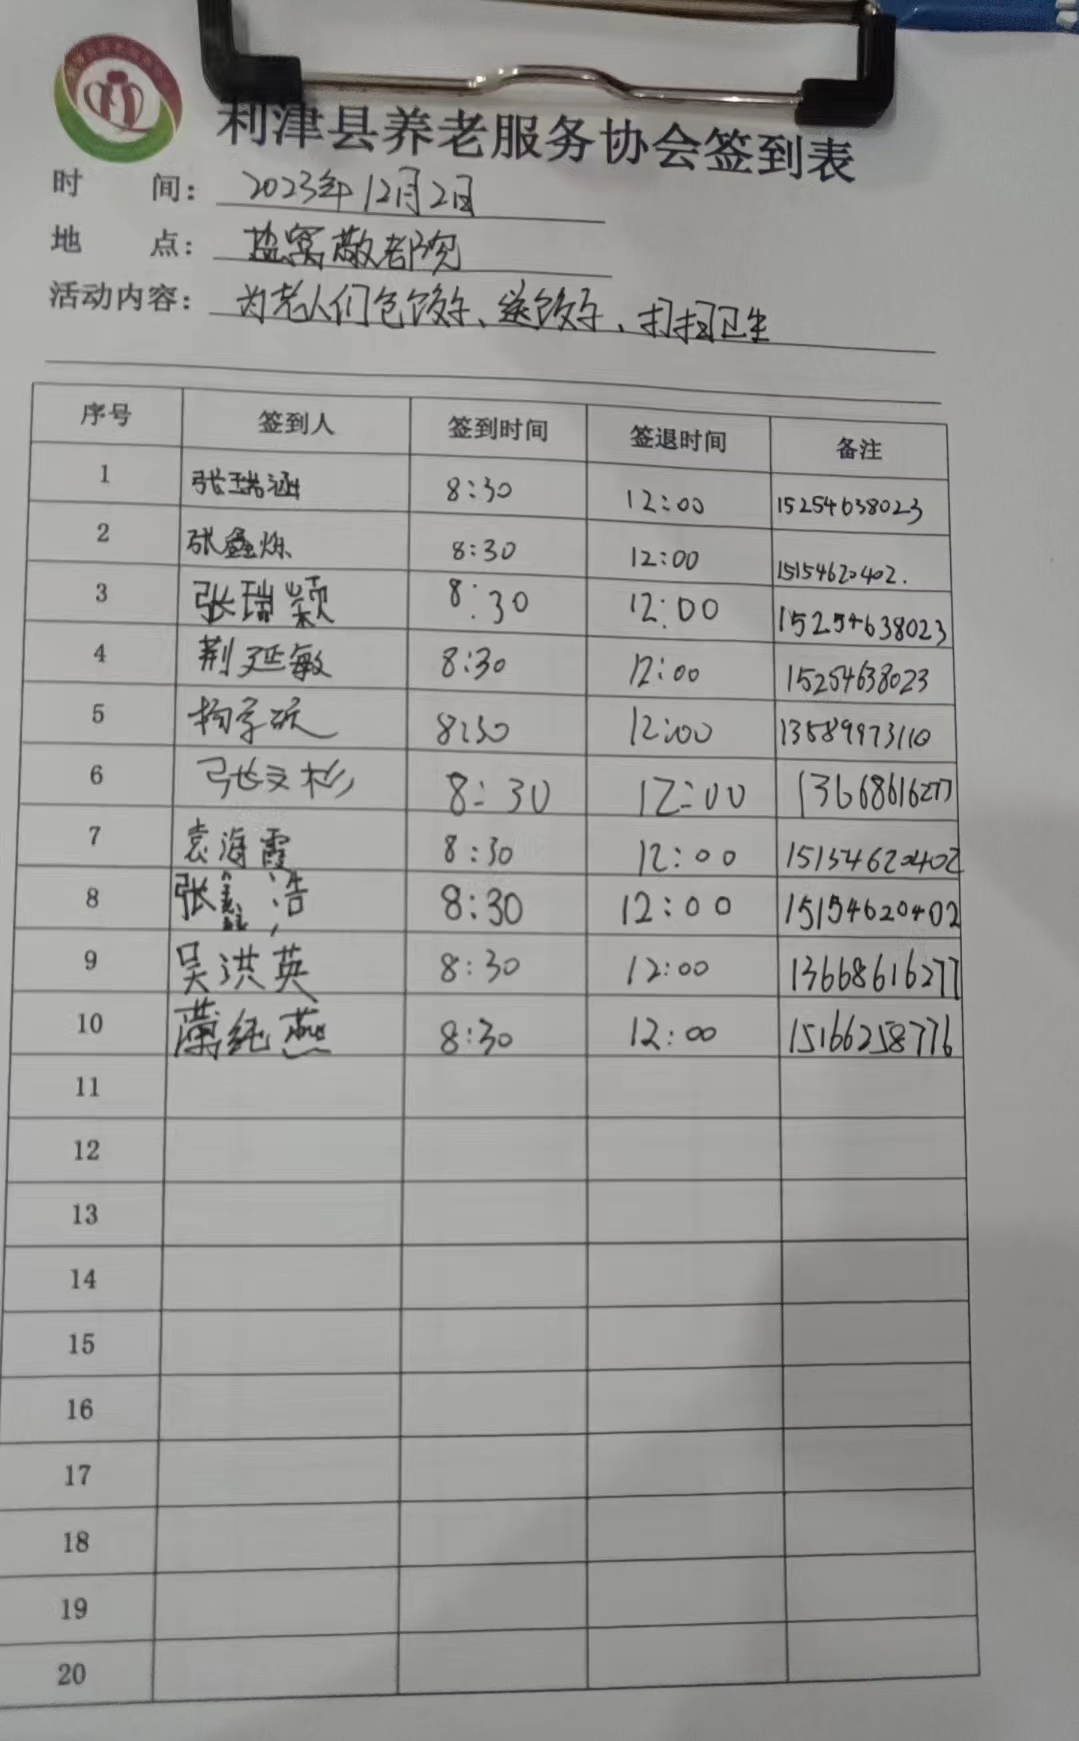 利津县养老服务协会签到表
时 间: 2023年12月2日
地 点: 盐窝敬老院
活动内容: 为老人们包饺子、送饺子、打扫卫生
序号 签到人 签到时间 签退时间 备注
1 张瑞涵 8:30 12:00 15254638023
2 张鑫烁 8:30 12:00 15154620402.
3 张瑞颖 8:30 12:00 15254638023
4 荆延敏 8:30 12:00 15254638023
5 8:30 12:00 13589973110
6 张文杉 8:30 12:00 13668616277
7 袁海霞 8:30 12:00 15154620402
8 张鑫浩 8:30 12:00 15154620402
9 吴洪英 8:30 12:00 13668616277
10 纯燕 8:30 12:00 15166258776
11
12
13
14
15
16
17
18
19
20